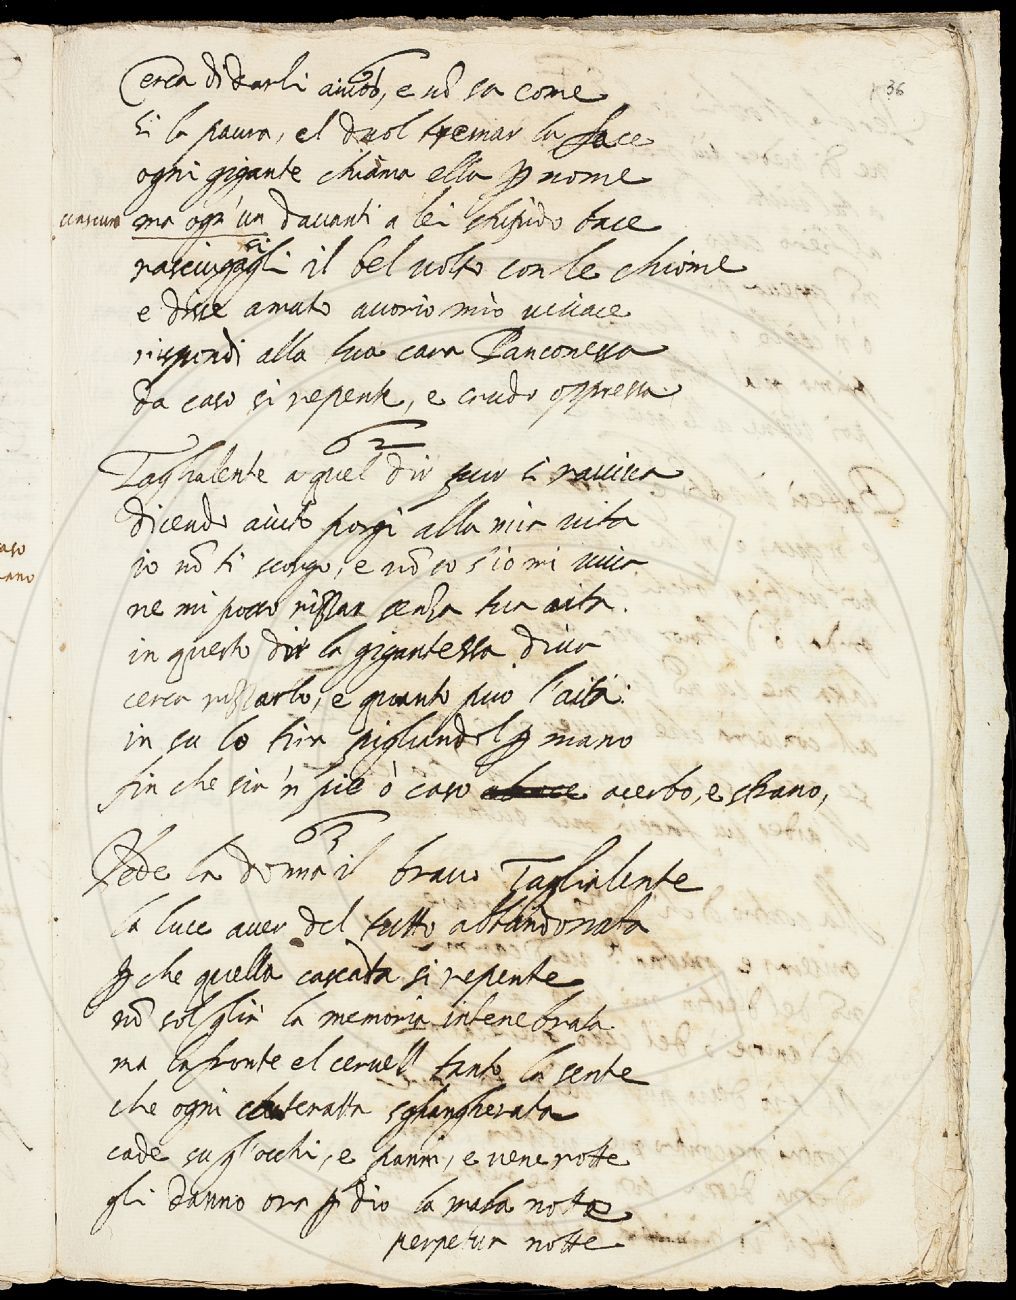 36
61
Cerca di darli aiuto, e nō sa come
si la paura, el duol tremar la face
ogni gigante chiama ella ꝑ nome
ciascuno ma ogn'un davanti a lei stupido tace
rasciugagli il bel uolto con le chiome
e disse amato auorio mio uiuace
rispondi alla tua cara Panconessa
da caso si repente, e crudo oppressa
62
Taglialente a quel dir pur si rauuiua
dicendo aiuto porgi alla mia uita
io nō ti scorgo, e nō so s'io mi uiua
ne mi posso rizzar senza tua aita.
in questo dir la gigantessa diua
cerca rizzarlo, e quanto puo l'aita:
in su lo tira pigliandol ꝑ mano
fin che sia 'n pie ò caso acerbo, e strano,
63
Vede la donna il brauo Taglialente
la luce auer del tutto abbandonata
ꝑche quella cascata si repente
nō sol gli à la memoria intenebrata
ma la fronte el ceruell tanto la sente
che ogni sgangherata
cade su gl'occhi, e panni, e uene rotte
gli danno ora ꝑ dio la mala notte
perpetua notte